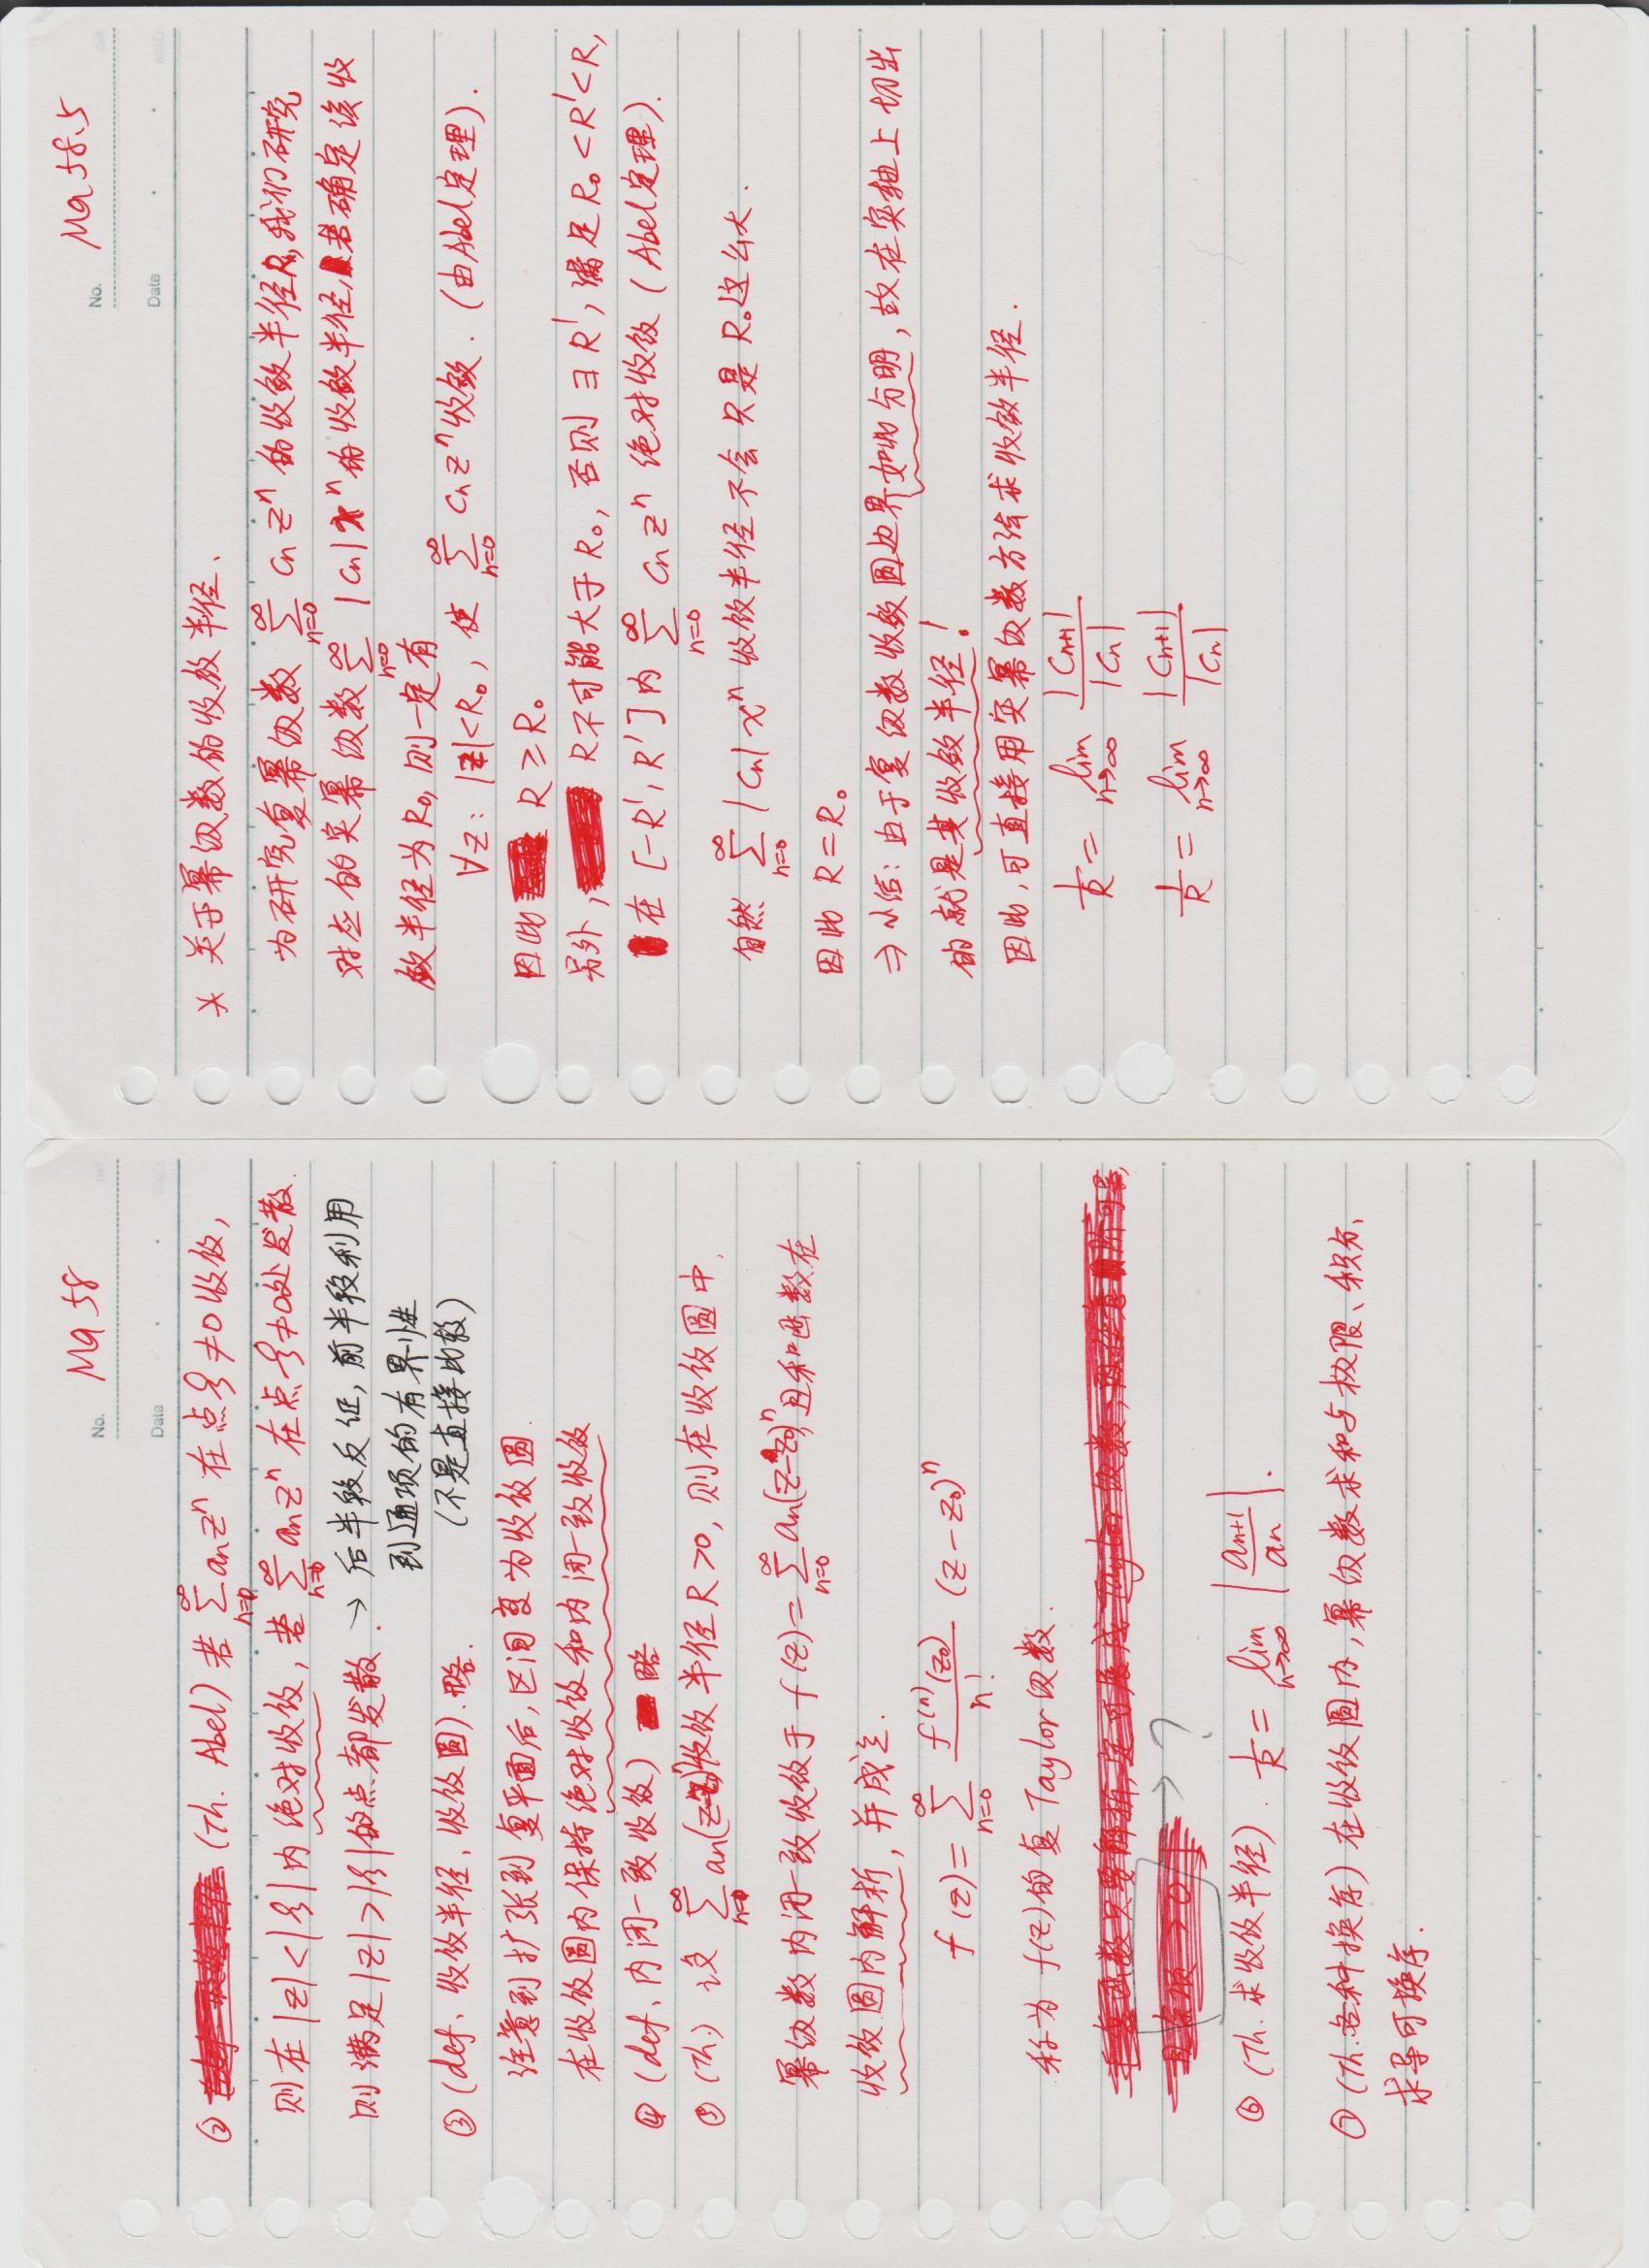 No. Ma 58
Date
② (Th. Abel) 若 $\sum_{n=0}^{\infty} a_n z^n$ 在点 ξ≠0 收敛,
则在 |z|<|ξ| 内绝对收敛, 若 $\sum_{n=0}^{\infty} a_n z^n$ 在点 ξ≠0 处发散.
则满足 |z|>|ξ| 的点都发散. → 后半段反证, 前半段利用
到通项的有界性
(不是直接比较)
③ (def、收敛半径, 收敛圆). 略.
注意到扩张到复平面后, 区间变为收敛圆.
在收敛圆内保持绝对收敛和内闭一致收敛
④ (def、内闭一致收敛) 略
⑤ (Th.) 设 $\sum_{n=0}^{\infty} a_n(z-z_0)^n$ 收敛半径 R>0, 则在收敛圆中,
幂级数内闭一致收敛于 $f(z)=\sum_{n=0}^{\infty} a_n(z-z_0)^n$, 且和函数在
收敛圆内解析, 并成立.
$f(z)=\sum_{n=0}^{\infty} \frac{f^{(n)}(z_0)}{n!} (z-z_0)^n$
称为 f(z) 的复 Taylor 级数.
→ ?
⑥ (Th. 求收敛半径). $\frac{1}{R}=\lim_{n\to\infty} \left|\frac{a_{n+1}}{a_n}\right|$.
⑦ (Th. 各种换序) 在收敛圆内, 幂级数求和与极限、积分、
求导可换序.
No. Ma 58.5
Date
* 关于幂级数的收敛半径、
为研究复幂级数 $\sum_{n=0}^{\infty} c_n z^n$ 的收敛半径R, 我们研究
对应的实幂级数 $\sum_{n=0}^{\infty} |c_n| x^n$ 的收敛半径, 若确定该收
敛半径为 R₀, 则一定有
∀z: |z|<R₀, 使 $\sum_{n=0}^{\infty} c_n z^n$ 收敛. (由Abel定理).
因此 R ≥ R₀
另外, R 不可能大于 R₀, 否则 ∃ R', 满足 R₀<R'<R,
在 [-R', R'] 内 $\sum_{n=0}^{\infty} c_n z^n$ 绝对收敛 (Abel定理).
自然 $\sum_{n=0}^{\infty} |c_n| x^n$ 收敛半径不会只是 R₀ 这么大.
因此 R=R₀
⇒ 小结: 由于复级数收敛圆边界如此分明, 故在实轴上切出
的就是其收敛半径!
因此, 可直接用实幂级数方法求收敛半径.
$\frac{1}{R}=\lim_{n\to\infty} \frac{|c_{n+1}|}{|c_n|}$
$\frac{1}{R}=\lim_{n\to\infty} \frac{|c_{n+1}|}{|c_n|}$